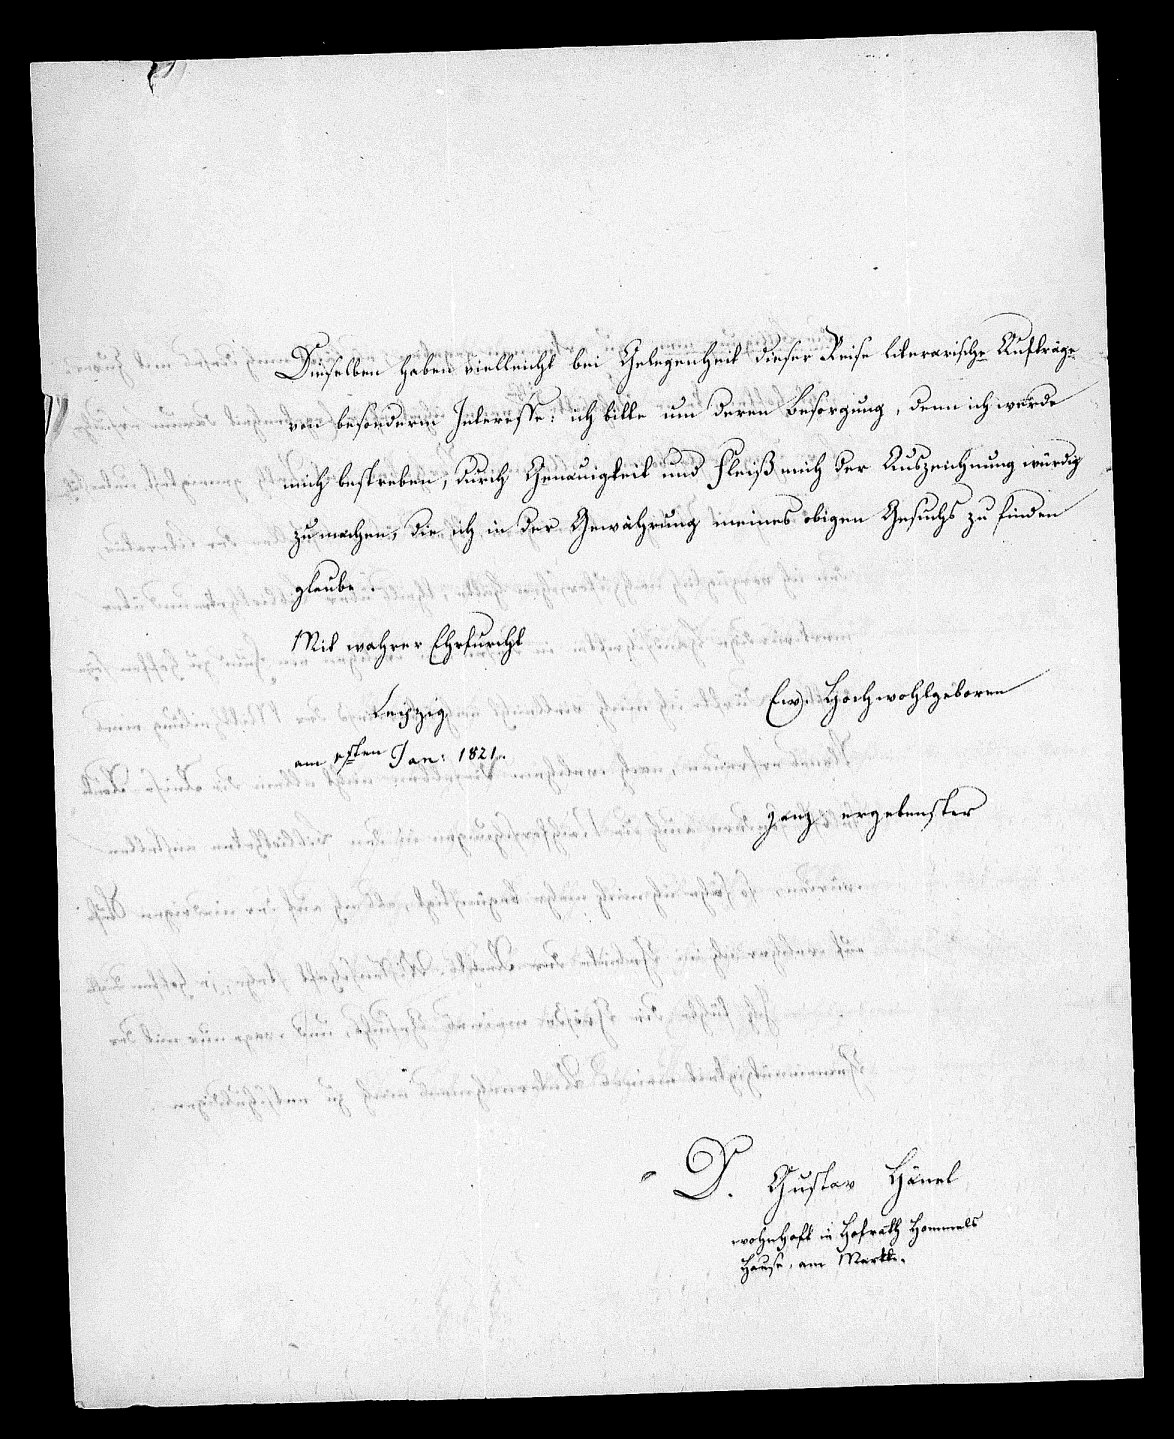 Dieselben haben vielleicht bei Gelegenheit dieser Reise literarische Aufträge
von besonderm Interesse: ich bitte um deren Besorgung, denn ich werde
mich bestreben, durch Genauigkeit und Fleiß mich der Auszeichnung würdig
zu machen, die ich in der Gewährung meines obigen Gesuchs zu finden
glaube.
Mit wahrer Ehrfurcht
Ew. Hochwohlgeboren
Leipzig
am 1sten Jan: 1821.
ganz ergebenster
D. Gustav Hänel
wohnhaft in Hofrath Hommels
Hause, am Markte.